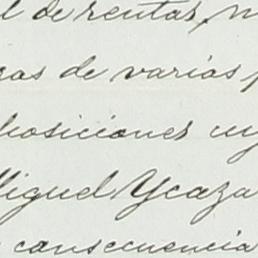 l de rentas, n
ras de varias
posiciones
Miguel Ycaza
consecuencia